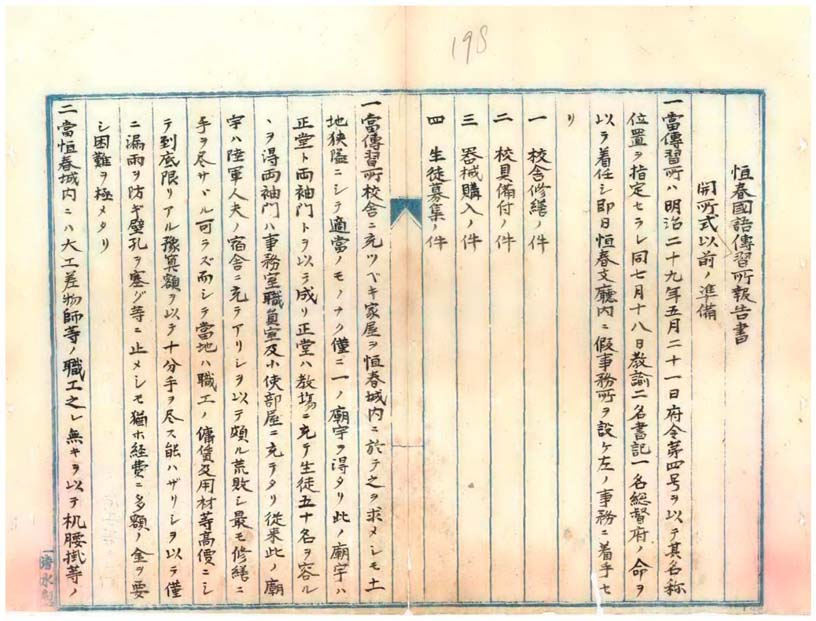 198
恒春國語傳習所報告書
開所式以前ノ準備
一當傳習所ハ明治二十九年五月二十一日府令第四号ヲ以テ其名称
位置ヲ指定セラレ同七月十八日教諭二名書記一名総督府ノ命ヲ
以ラ着任シ即日恒春支廳内ニ假事務所ヲ設ケ左ノ事務ニ着手セ
リ
一 校舎修繕ノ件
二 校具備付ノ件
三 器械購入ノ件
四 生徒募集ノ件
一當傳習所校舎ニ充ツベキ家屋ヲ恒春城内ニ於テ之ヲ求メシモ土
地狭隘ニシテ適當ノモノナク僅ニ一ノ廟宇ヲ得タリ此ノ廟宇ハ
正堂ト両袖門トヲ以テ成リ正堂ハ教塲ニ充テ生徒五十名ヲ容ル
ヽヲ得両袖門ハ事務室職員室及小使部屋ニ充テタリ従来此ノ廟
宇ハ陸軍人夫ノ宿舎ニ充テアリシヲ以テ頗ル荒敗シ最モ修繕ニ
手ヲ尽サヾル可ラズ而シテ當地ハ職工ノ傭賃及用材等高價ニシ
テ到底限リアル豫算額ヲ以テ十分手ヲ尽ス能ハザリシヲ以テ僅
ニ漏雨ヲ防ギ壁孔ヲ塞グ等ニ止メシモ猶ホ経費ニ多額ノ金ヲ要
シ困難ヲ極メタリ
二當恒春城内ニハ大工差物師等ノ職工之レ無キヲ以テ机腰掛等ノ
清水製